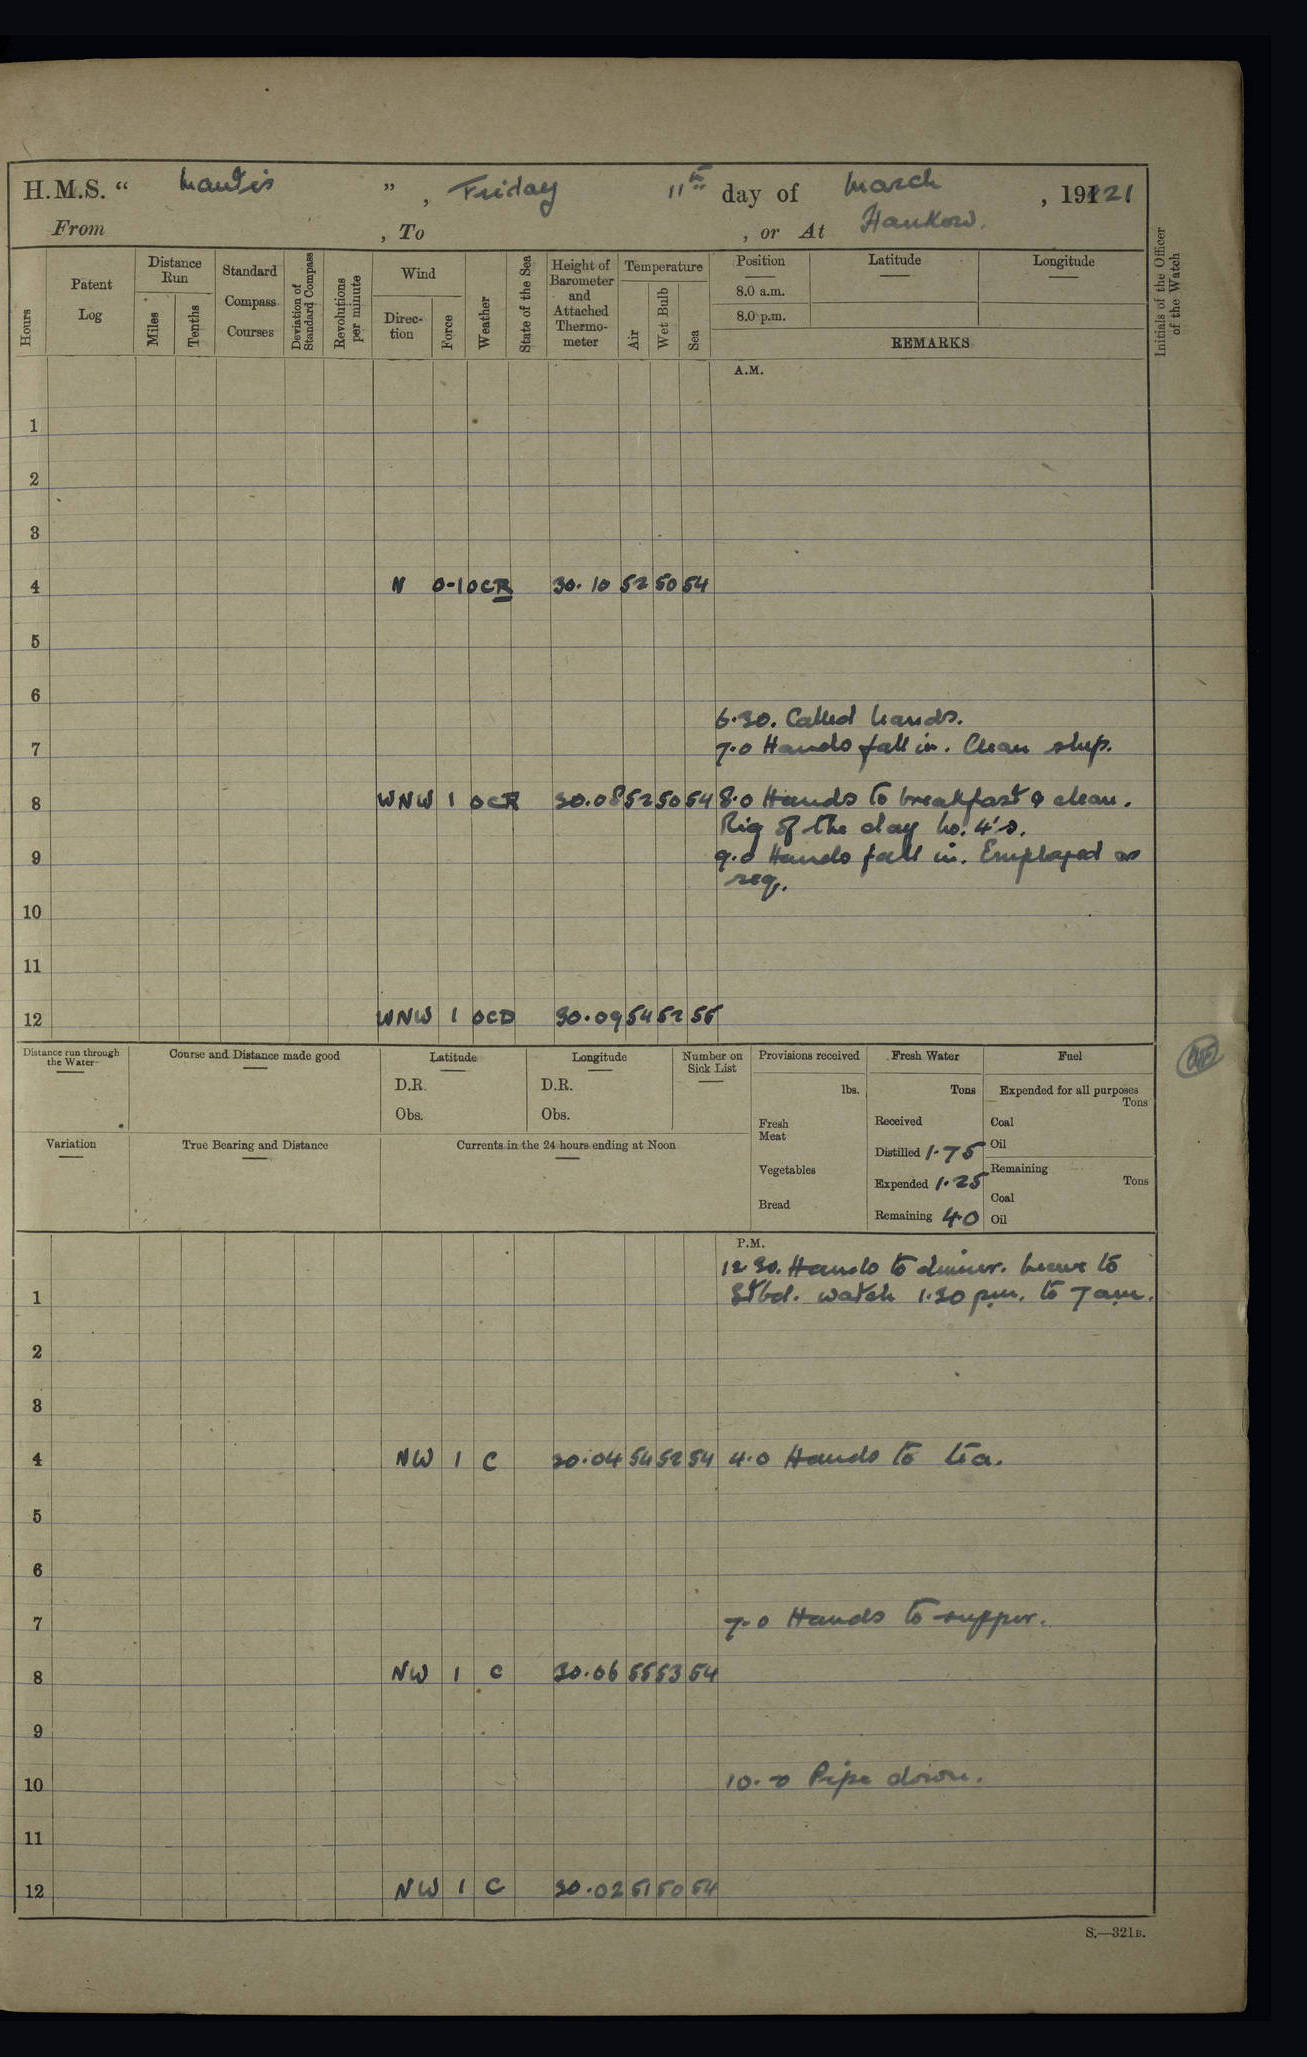 H.M.S. “ Mantis ” , Friday 11th day of March , 1921
From , To , or At Hankow.
Hours
Patent Log
Distance Run
Miles
Tenths
Standard Compass Courses
Deviation of Standard Compass
Revolutions per minute
Wind
Direction
Force
Weather
State of the Sea
Height of Barometer and Attached Thermometer
Temperature
Air
Wet Bulb
Sea
Position
8.0 a.m.
8.0 p.m.
Latitude
Longitude
REMARKS
Initials of the Officer of the Watch
A.M.
1
2
3
4 N 0-1 OCR 30.10 52 50 54
5
6
6.30. Called hands.
7 7.0 Hands fall in. Clean ship.
8 WNW 1 OCR 30.08 52 50 54 8.0 Hands to breakfast & clean.
Rig of the day No. 4's.
9 9.0 Hands fall in. Employed as
req.
10
11
12 WNW 1 OCD 30.09 54 52 55
Distance run through the Water
Course and Distance made good
Latitude
D.R.
Obs.
Longitude
D.R.
Obs.
Number on Sick List
Provisions received
lbs.
Fresh Meat
Vegetables
Bread
Fresh Water
Tons
Received
Distilled 1.75
Expended 1.25
Remaining 40
Fuel
Expended for all purposes
Tons
Coal
Oil
Remaining
Tons
Coal
Oil
Variation
True Bearing and Distance
Currents in the 24 hours ending at Noon
P.M.
12.30. Hands to dinner. Leave to
1 Stbd. watch 1.30 pm. to 7 am.
2
3
4 NW 1 C 30.04 54 52 54 4.0 Hands to tea.
5
6
7 7.0 Hands to supper.
8 NW 1 C 30.06 55 53 54
9
10 10.0 Pipe down.
11
12 NW 1 C 30.02 51 50 54
S.—321B.